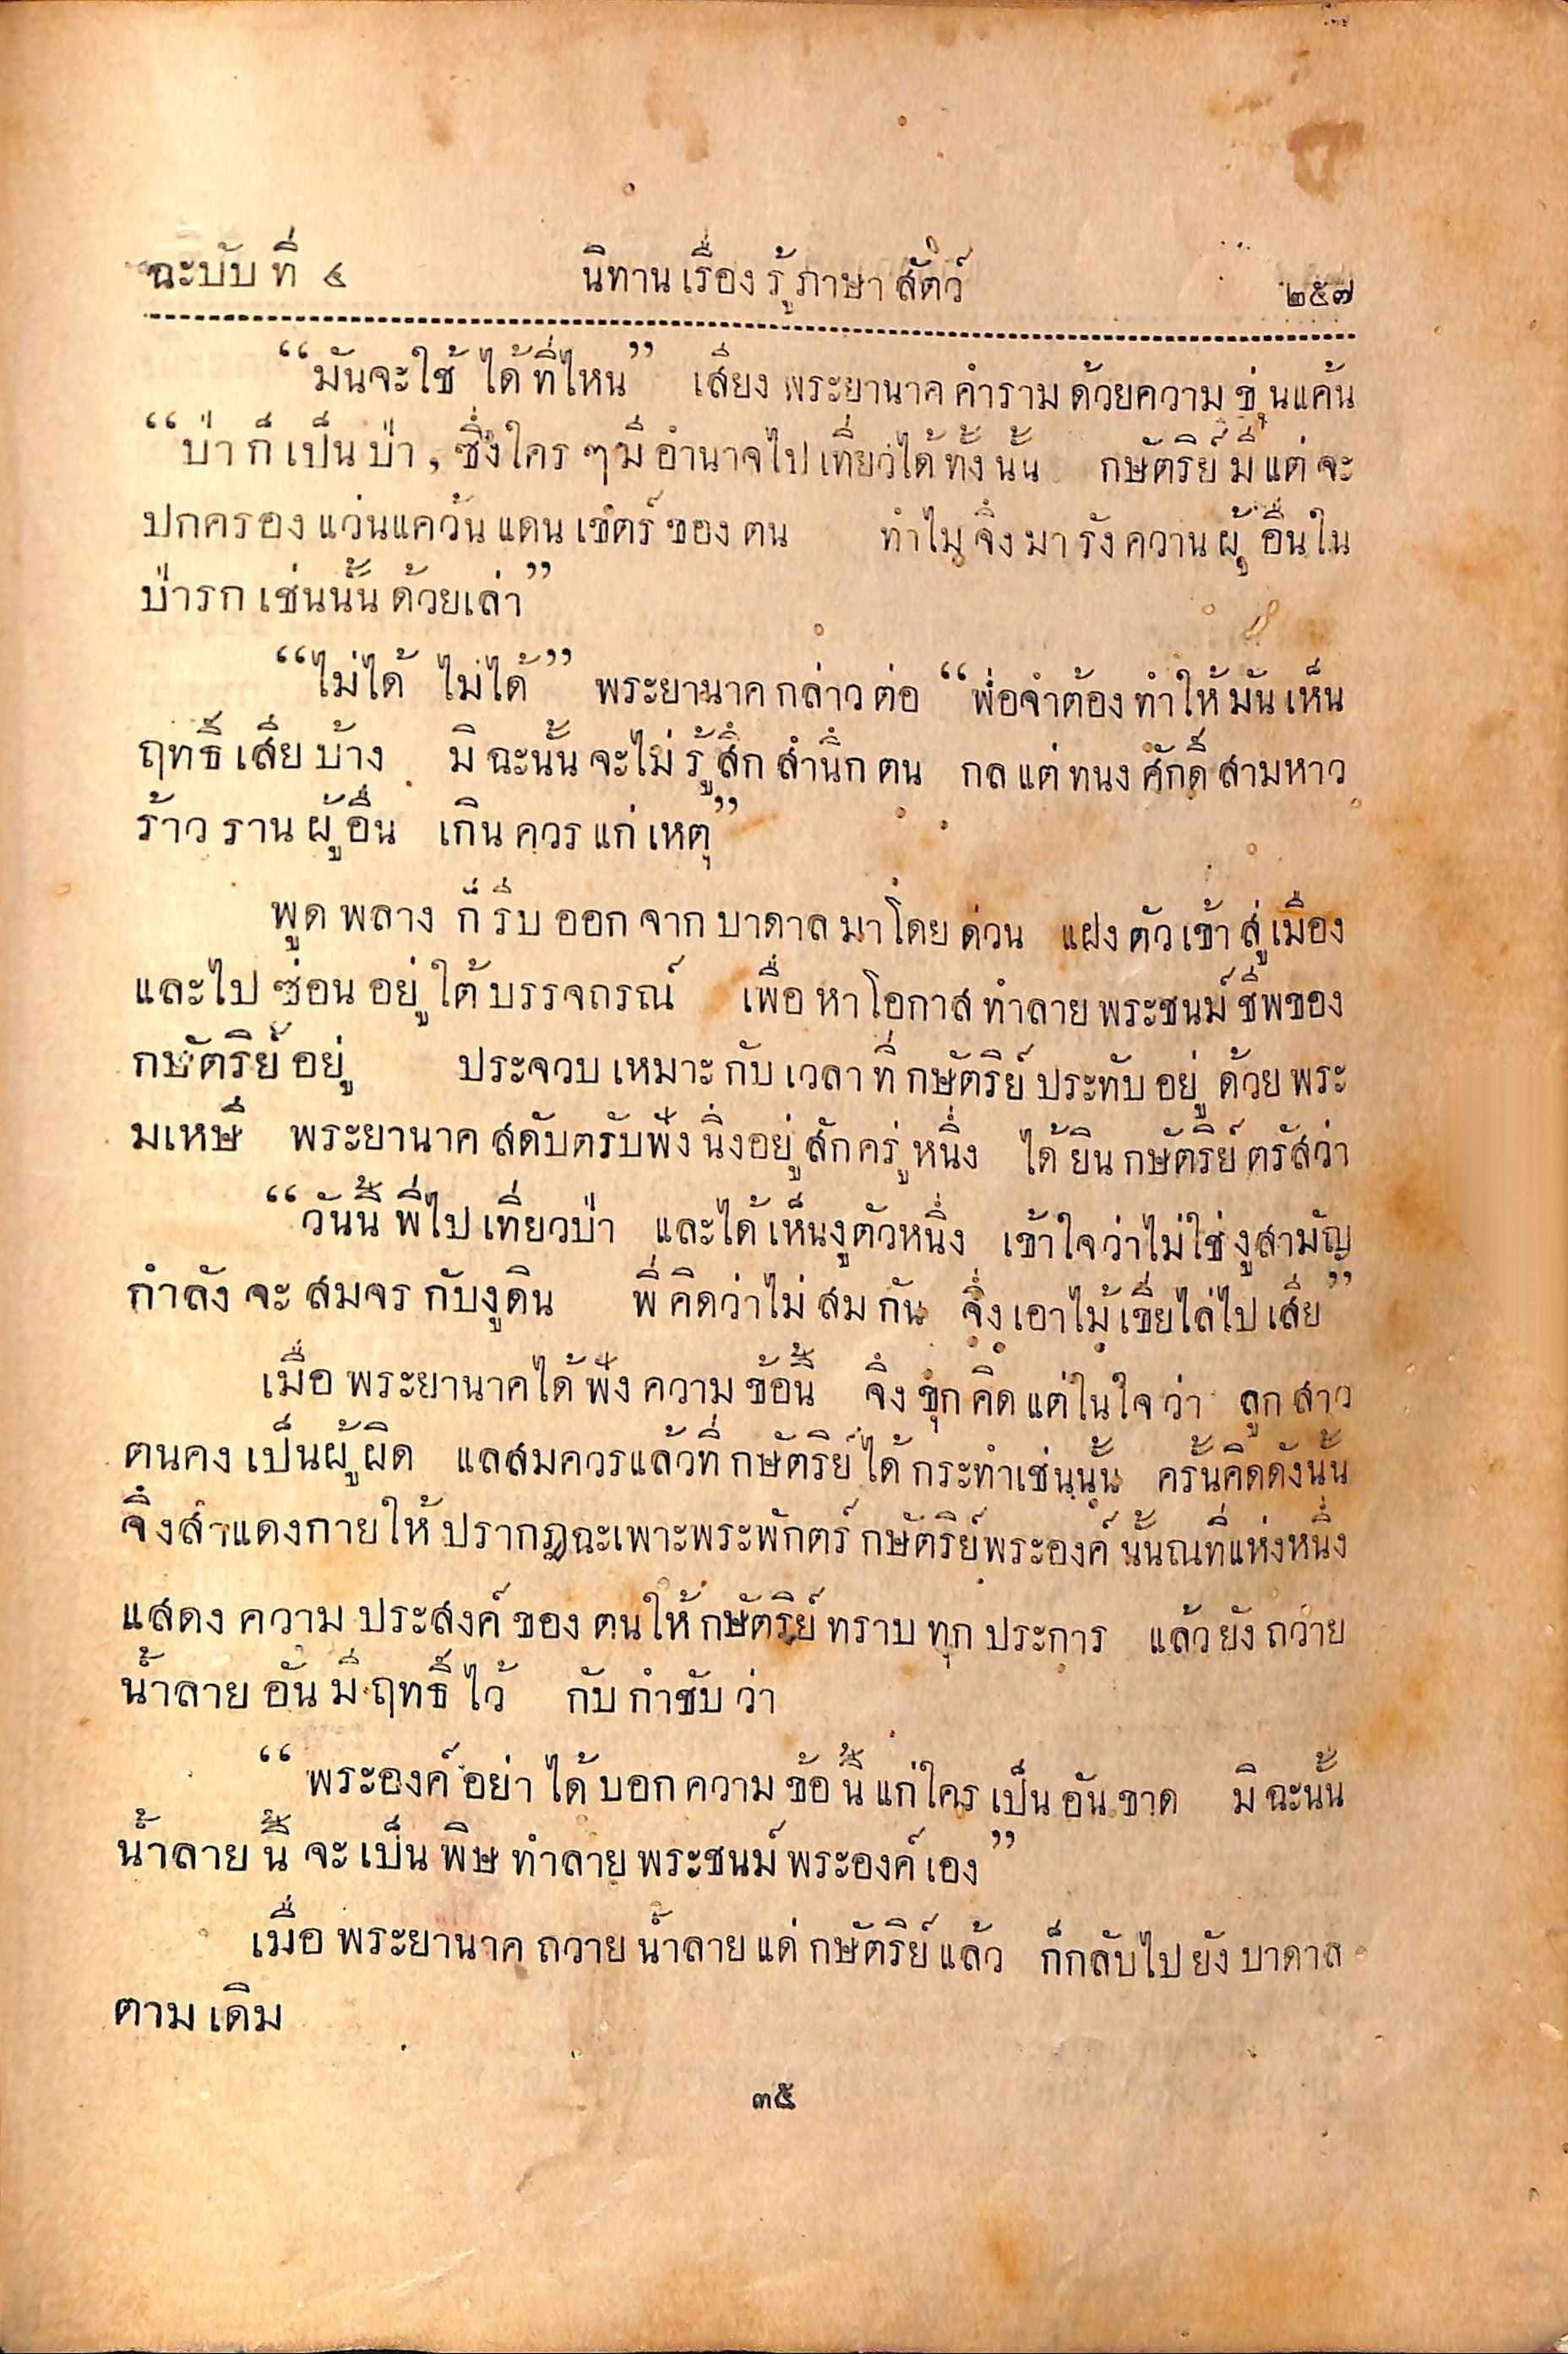 ฉะบับที่ ๔ นิทานเรื่องรู้ภาษาสัตว์ ๒๕๗
“มันจะใช้ได้ที่ไหน” เสียงพระยานาคคำรามด้วยความขุ่นแค้น
“ป่าก็เป็นป่า, ซึ่งใครๆมีอำนาจไปเที่ยวได้ทั้งนั้น กษัตริย์มีแต่จะ
ปกครองแว่นแคว้นแดนเขตร์ของตน ทำไมจึงมารังควานผู้อื่นใน
ป่ารกเช่นนั้นด้วยเล่า”
“ไม่ได้ ไม่ได้” พระยานาคกล่าวต่อ “พ่อจำต้องทำให้มันเห็น
ฤทธิ์เสียบ้าง มิฉะนั้นจะไม่รู้สึกสำนึกตน กลแต่ทนงศักดิ์สามหาว
ร้าวรานผู้อื่น เกินควรแก่เหตุ”
พูดพลางก็รีบออกจากบาดาลมาโดยด่วน แฝงตัวเข้าสู่เมือง
และไปซ่อนอยู่ใต้บรรจถรณ์ เพื่อหาโอกาสทำลายพระชนม์ชีพของ
กษัตริย์อยู่ ประจวบเหมาะกับเวลาที่กษัตริย์ประทับอยู่ด้วยพระ
มเหษี พระยานาคสดับตรับฟังนิ่งอยู่สักครู่หนึ่ง ได้ยินกษัตริย์ตรัสว่า
“วันนี้พี่ไปเที่ยวป่า และได้เห็นงูตัวหนึ่ง เข้าใจว่าไม่ใช่งูสามัญ
กำลังจะสมจรกับงูดิน พี่คิดว่าไม่สมกัน จึ่งเอาไม้เขี่ยไล่ไปเสีย”
เมื่อพระยานาคได้ฟังความข้อนี้ จึงขุกคิดแต่ในใจว่า ลูกสาว
ตนคงเป็นผู้ผิด แลสมควรแล้วที่กษัตริย์ได้กระทำเช่นนั้น ครั้นคิดดังนั้น
จึงสำแดงกายให้ปรากฏฉะเพาะพระพักตร์กษัตริย์พระองค์นั้นณที่แห่งหนึ่ง
แสดงความประสงค์ของตนให้กษัตริย์ทราบทุกประการ แล้วยังถวาย
น้ำลายอันมีฤทธิ์ไว้ กับกำชับว่า
“พระองค์อย่าได้บอกความข้อนี้แก่ใครเป็นอันขาด มิฉะนั้น
น้ำลายนี้จะเป็นพิษทำลายพระชนม์พระองค์เอง”
เมื่อพระยานาคถวายน้ำลายแด่กษัตริย์แล้ว ก็กลับไปยังบาดาล
ตามเดิม
๓๕